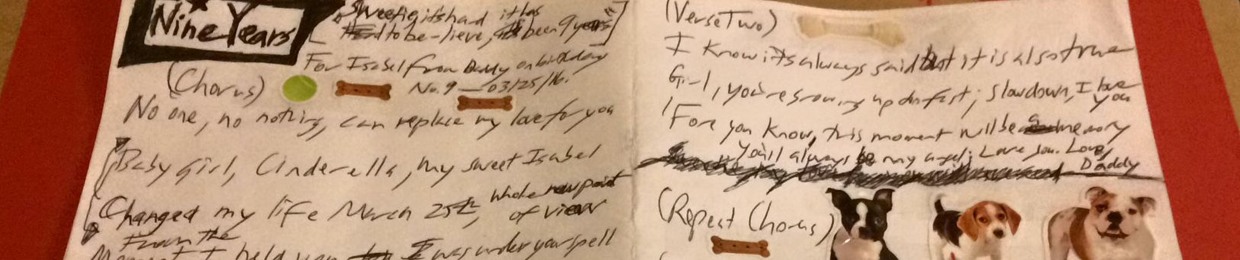 Nine Years
[Sweetie it's hard it has
to be-lieve, been 9 years]
For Isabel From Daddy on birthday
No. 9 — 03/25/16.
(Chorus)
No one, no nothing, can replace my love for you
Baby Girl, Cinderella, my sweet Isabel
Changed my life March 25th, whole new point
of view
From the
Moment I held you I was under your spell
(Verse Two)
I know its always said but it is also true
Girl, you're growing up so fast; slow down, I love
you
'Fore you know, this moment will be memory
You'll always be my angel; Love you. Love,
Daddy
(Repeat Chorus)